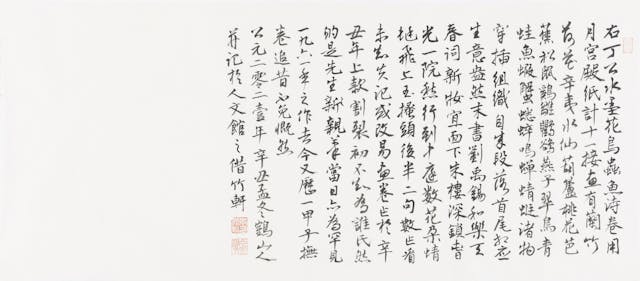 右丁公水墨花鳥蟲魚詩卷用
月宮殿紙計十一接畫有蘭竹
荷花辛夷水仙葫蘆桃花芭
蕉松鼠鵪雛鸚鵒燕子翠鳥青
蛙魚蝦蟹蟋蟀鳴蟬蜻蜓諸物
穿插組織自成段落首尾相應
生意盎然末書劉禹錫和樂天
春词新妝宜面下朱樓深鎖春
光一院愁行到中庭數花朵蜻
蜓飛上玉搔頭後半二句數
未知失记或改易畫卷作於辛
丑年上款割裂初不知為誰氏然
的是先生親筆當日亦為罕見
一九六一年之作去今又歷一甲子撫
卷追昔不免慨然
公元二零二壹年辛丑孟冬鶴山人
并记於人文館之借竹軒